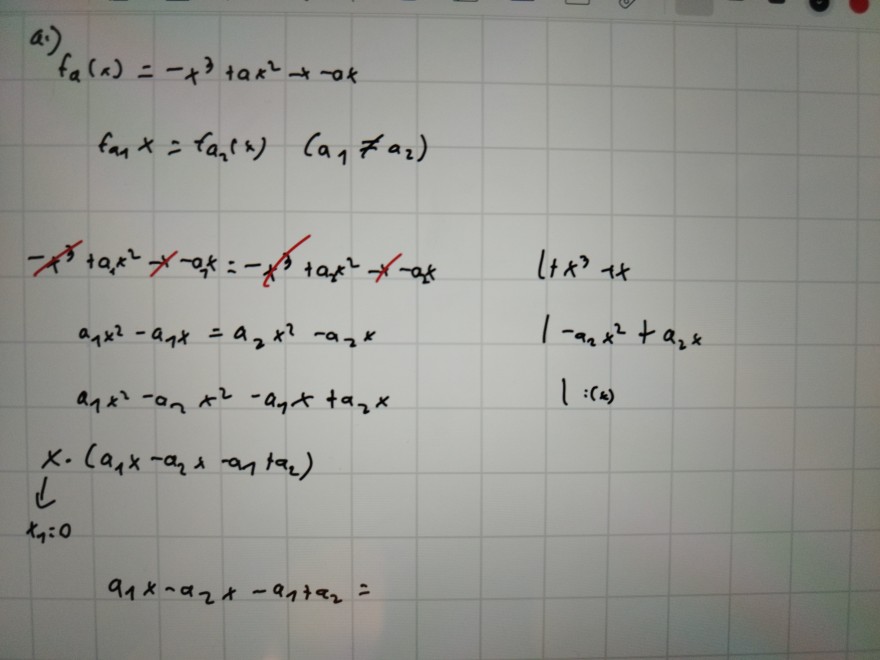 a.)
fₐ(x) = -x³ + ax² -x -ax
fₐ₁ x = fₐ₂(x) (a₁ ≠ a₂)
-x³ + a₁x² -x -a₁x = -x³ + a₂x² -x -a₂x |+x³ +x
a₁x² - a₁x = a₂x² -a₂x | -a₂x² + a₂x
a₁x² -a₂x² -a₁x +a₂x | :(x)
x · (a₁x -a₂x -a₁ +a₂)
↓
x₁=0
a₁x -a₂x -a₁+a₂ =